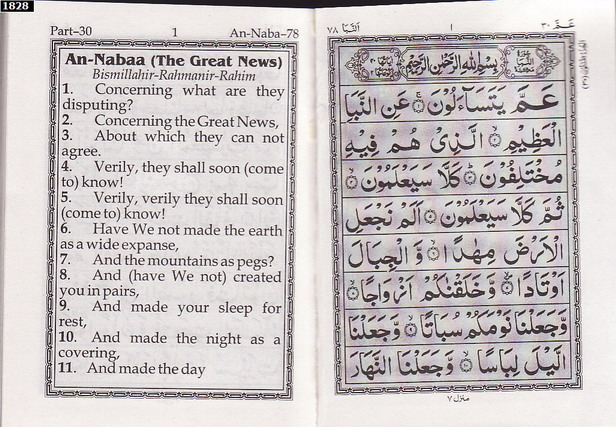 1828
Part-30 1 An-Naba-78
An-Nabaa (The Great News)
Bismillahir-Rahmanir-Rahim
1. Concerning what are they
disputing?
2. Concerning the Great News,
3. About which they can not
agree.
4. Verily, they shall soon (come
to) know!
5. Verily, verily they shall soon
(come to) know!
6. Have We not made the earth
as a wide expanse,
7. And the mountains as pegs?
8. And (have We not) created
you in pairs,
9. And made your sleep for
rest,
10. And made the night as a
covering,
11. And made the day
عَمَّ ٣٠ ١ اَلنَّبَاِ ٧٨
بِسْمِ اللهِ الرَّحْمٰنِ الرَّحِيْمِ
عَمَّ يَتَسَآءَلُوْنَ ۝ عَنِ النَّبَاِ
الْعَظِيْمِ ۝ الَّذِىْ هُمْ فِيْهِ
مُخْتَلِفُوْنَ ۝ كَلَّا سَيَعْلَمُوْنَ ۝
ثُمَّ كَلَّا سَيَعْلَمُوْنَ ۝ اَلَمْ نَجْعَلِ
الْاَرْضَ مِهٰدًا ۝ وَّالْجِبَالَ
اَوْتَادًا ۝ وَّخَلَقْنٰكُمْ اَزْوَاجًا ۝
وَّجَعَلْنَا نَوْمَكُمْ سُبَاتًا ۝ وَّجَعَلْنَا
الَّيْلَ لِبَاسًا ۝ وَّجَعَلْنَا النَّهَارَ
منزل ٧